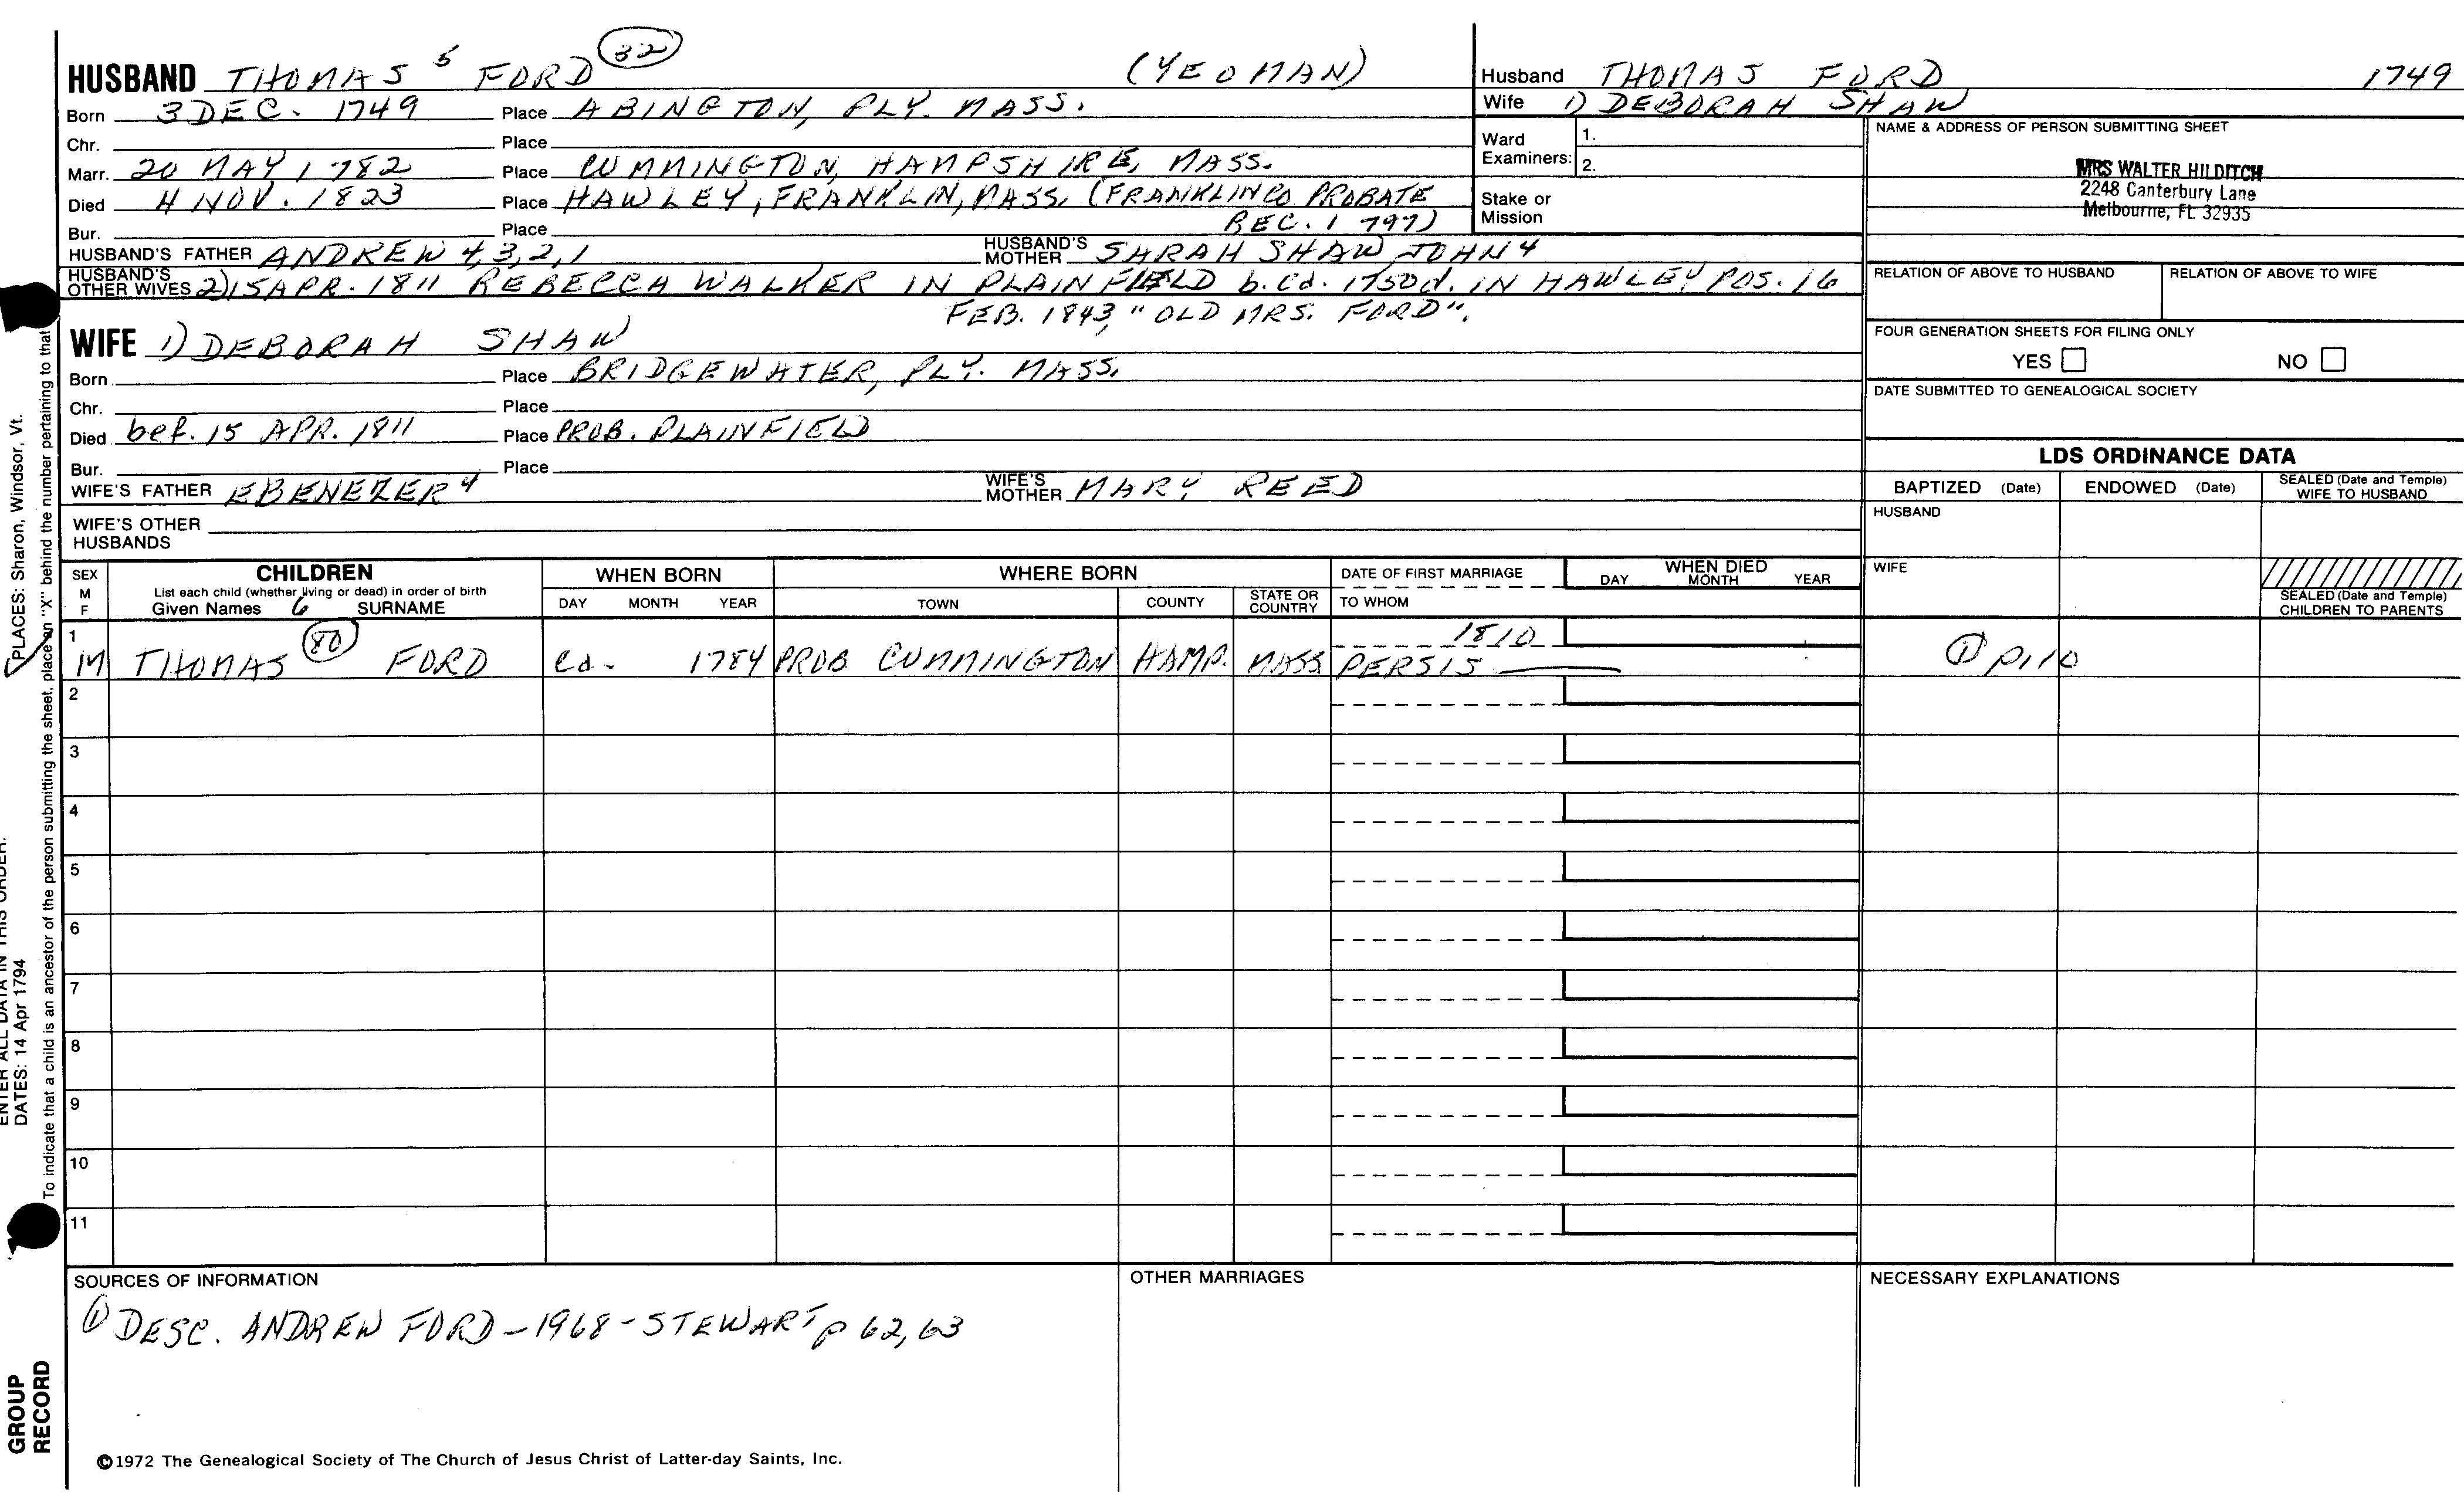 HUSBAND THOMAS 5 FORD 32 (YEOMAN)
Born 3 DEC. 1749 Place ABINGTON, PLY. MASS.
Chr. Place
Marr. 20 MAY 1782 Place CUMMINGTON, HAMPSHIRE, MASS.
Died 4 NOV. 1823 Place HAWLEY, FRANKLIN, MASS. (FRANKLIN CO PROBATE
REC. 1797)
Bur. Place
HUSBAND'S FATHER ANDREW 4,3,2,1 HUSBAND'S MOTHER SARAH SHAW JOHN 4
HUSBAND'S OTHER WIVES 2) 15 APR. 1811 REBECCA WALKER IN PLAINFIELD b. ca. 1750 d. IN HAWLEY POS. 16
FEB. 1843, "OLD MRS. FORD".
WIFE 1) DEBORAH SHAW
Born Place BRIDGEWATER, PLY. MASS.
Chr. Place
Died bef. 15 APR. 1811 Place PROB. PLAINFIELD
Bur. Place
WIFE'S FATHER EBENEZER 4 WIFE'S MOTHER MARY REED
WIFE'S OTHER HUSBANDS
Husband THOMAS FORD 1749
Wife 1) DEBORAH SHAW
Ward Examiners: 1.
2.
Stake or Mission
NAME & ADDRESS OF PERSON SUBMITTING SHEET
MRS WALTER HILDITCH
2248 Canterbury Lane
Melbourne, FL 32935
RELATION OF ABOVE TO HUSBAND RELATION OF ABOVE TO WIFE
FOUR GENERATION SHEETS FOR FILING ONLY
YES NO
DATE SUBMITTED TO GENEALOGICAL SOCIETY
LDS ORDINANCE DATA
BAPTIZED (Date) ENDOWED (Date) SEALED (Date and Temple) WIFE TO HUSBAND
HUSBAND
WIFE
SEALED (Date and Temple) CHILDREN TO PARENTS
SEX M F
CHILDREN
List each child (whether living or dead) in order of birth
Given Names 6 SURNAME
WHEN BORN
DAY MONTH YEAR
WHERE BORN
TOWN COUNTY STATE OR COUNTRY
DATE OF FIRST MARRIAGE
TO WHOM
WHEN DIED
DAY MONTH YEAR
1 1810
M THOMAS 80 FORD ca. 1784 PROB CUMMINGTON HAMP. MASS PERSIS —— 1 p110
2
3
4
5
6
7
8
9
10
11
SOURCES OF INFORMATION
1 DESC. ANDREW FORD - 1968 - STEWART p 62, 63
OTHER MARRIAGES
NECESSARY EXPLANATIONS
©1972 The Genealogical Society of The Church of Jesus Christ of Latter-day Saints, Inc.
GROUP RECORD
ENTER ALL DATA IN THIS ORDER:
DATES: 14 Apr 1794
PLACES: Sharon, Windsor, Vt.
To indicate that a child is an ancestor of the person submitting the sheet, place an "X" behind the number pertaining to that